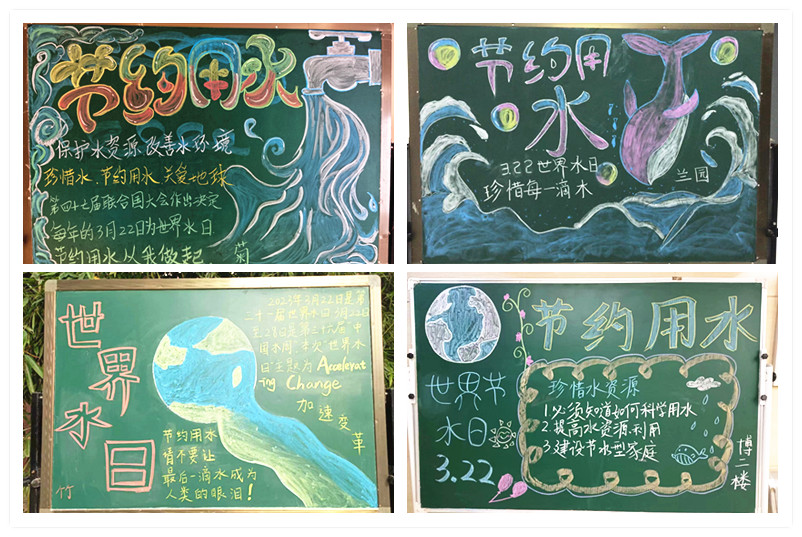 节约用水
保护水资源 改善水环境
珍惜水.节约用水.关爱地球
第四十七届联合国大会作出决定
每年的3月22日为世界水日
节约用水从我做起
菊
节约用
水
3.22世界水日
珍惜每一滴水
兰园
世界水日
竹
2023年3月22日是第
三十一届世界水日3月22日
至28日是第三十六届中
国水周.本次"世界水
日"主题为 Accelerat
ing Change
加速变革
节约用水
请不要让
最后一滴水成为
人类的眼泪!
节约用水
世界节
水日
3.22
珍惜水资源
1.必须知道如何科学用水
2.提高水资源利用
3.建设节水型家庭
博二楼